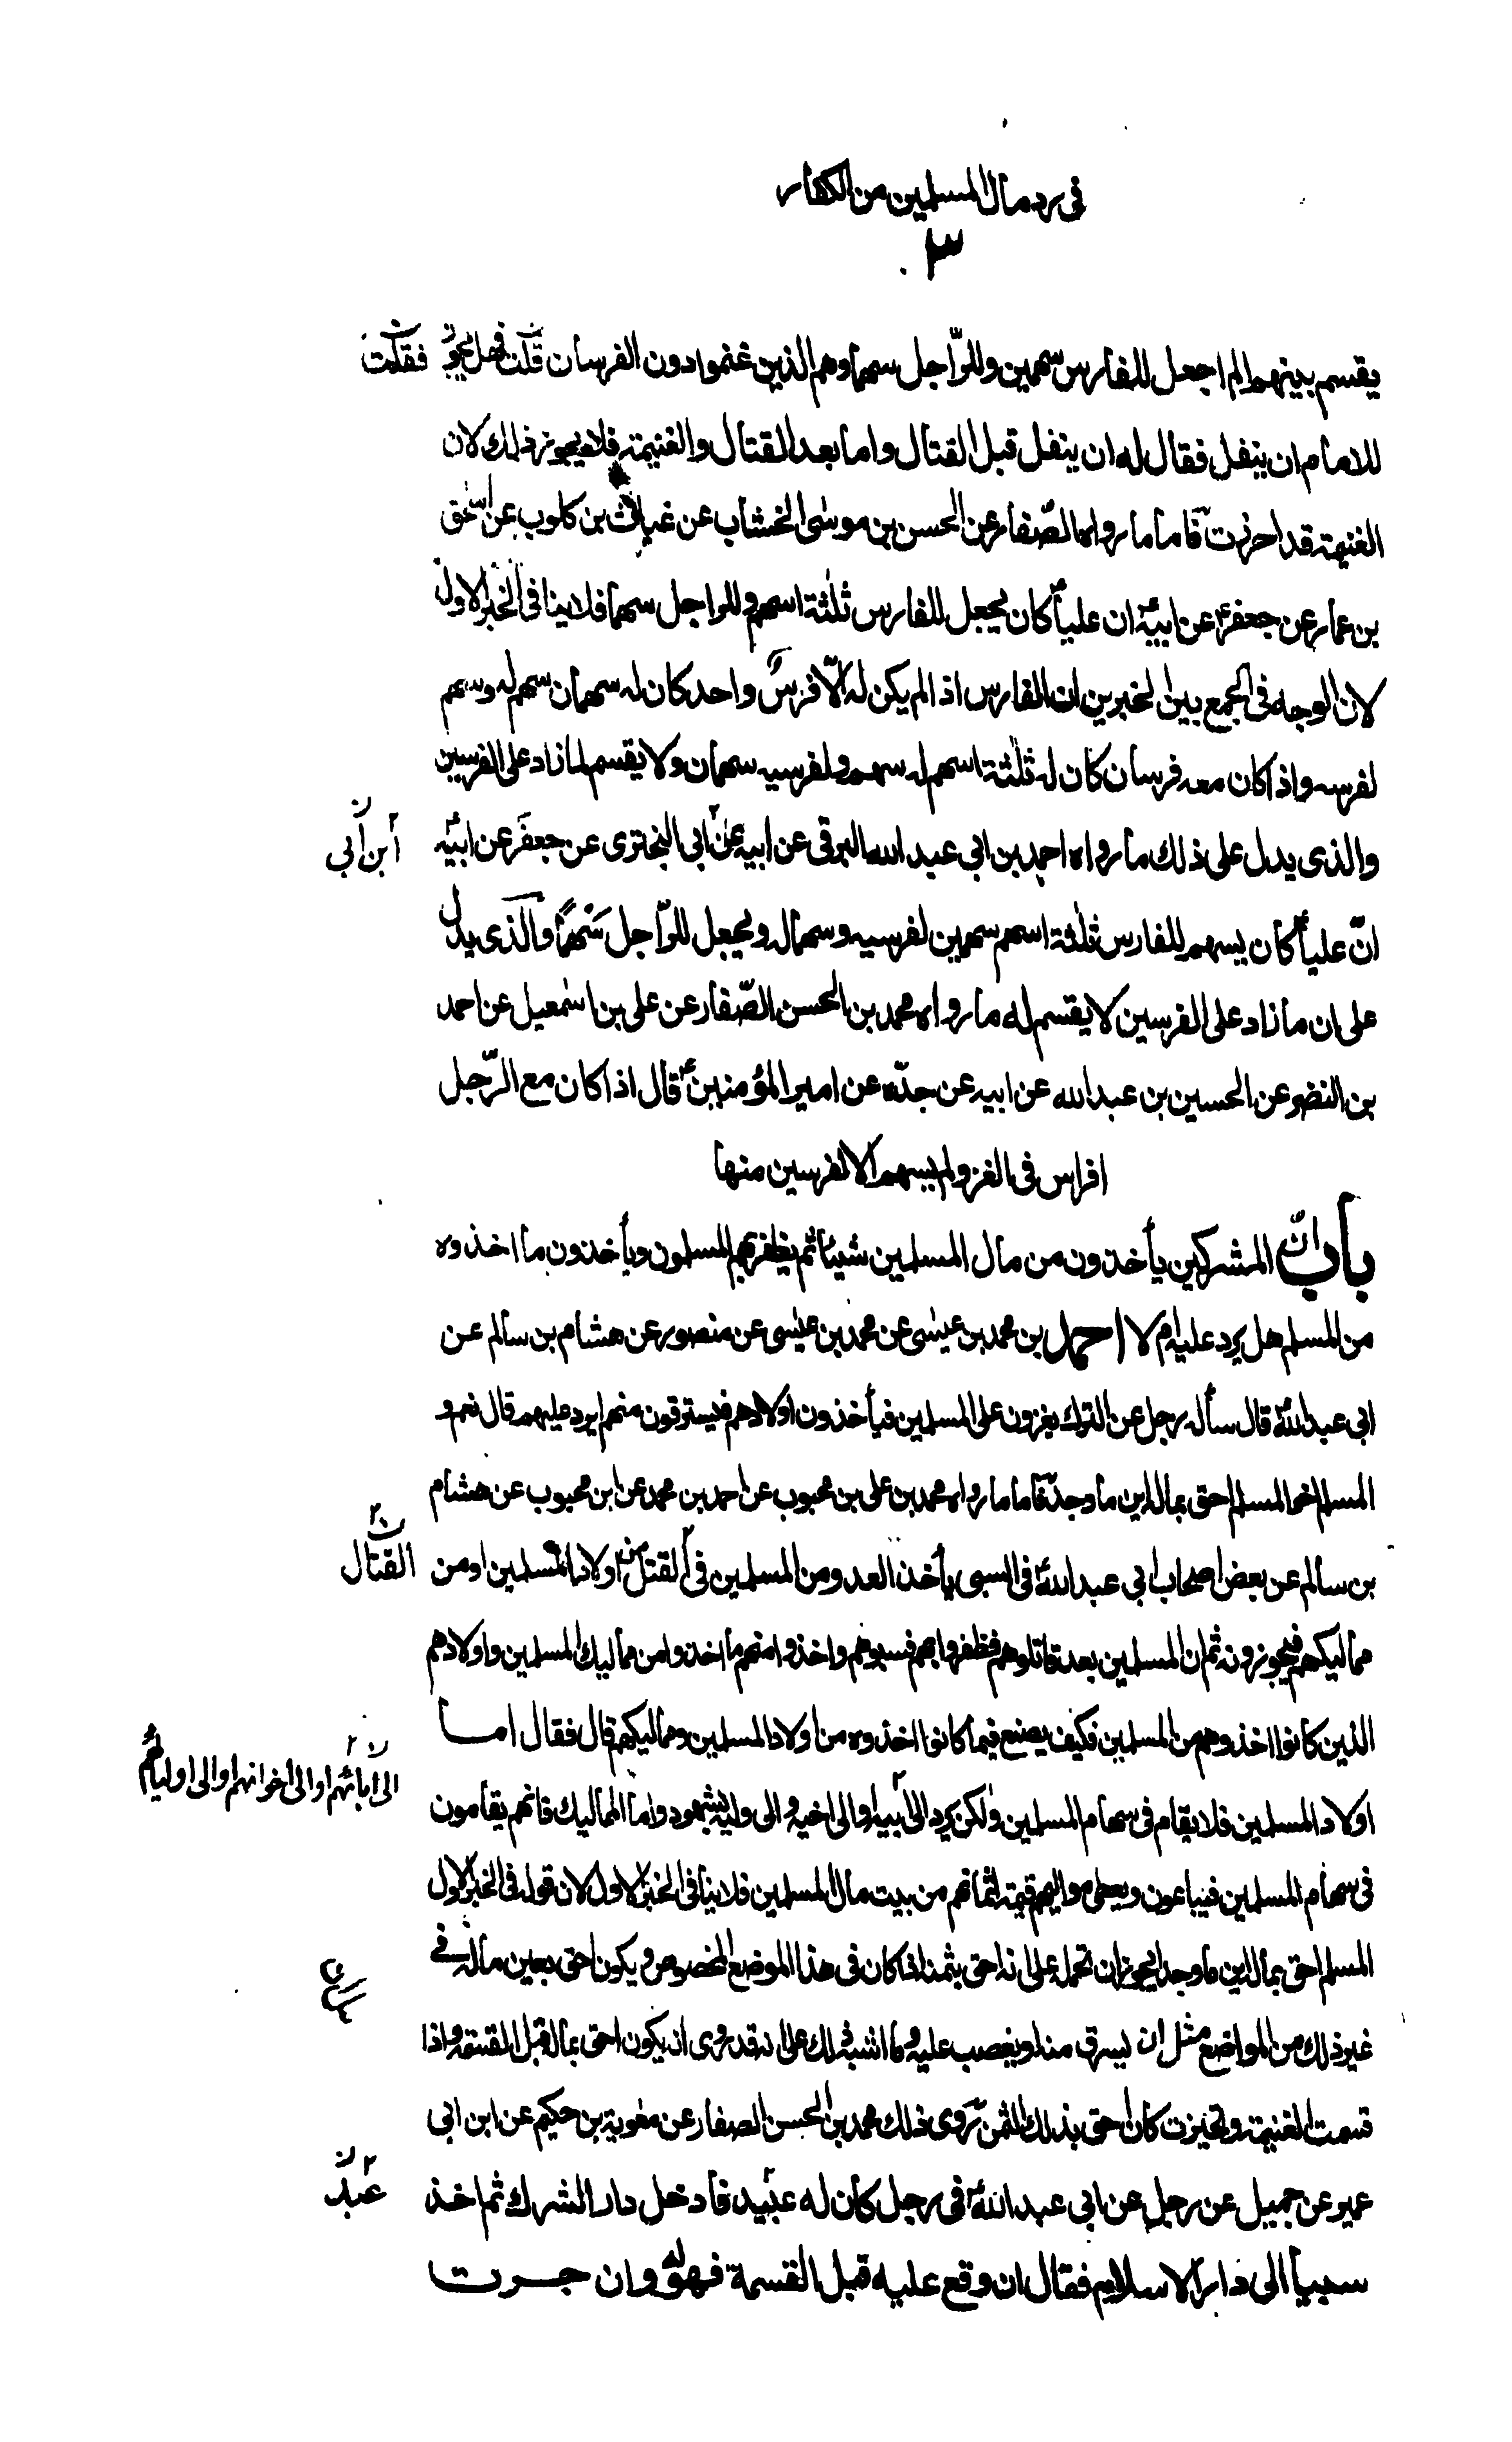 في رد مال المسلمين من الكفار
٣
يقسم بينهم الم اجعل للفارس سهمين وللرّاجل سهما وهم الذين غنموا دون الفرسان قلت فهل يجوز
فقلت
للامام ان ينفل فقال له ان ينفل قبل القتال واما بعد القتال والغنيمة فلا يجوز ذلك لان
الغنيمة قد احرزت فاما ما رواه الصّفار عن الحسن بن موسى الخشاب عن غياث بن كلوب عن اسحق
بن عمار عن جعفرؑ عن ابيهؑ ان علياًؑ كان يجعل للفارس ثلثة اسهم وللراجل سهما فلا ينافى الخبر الاول
لان الوجه فى الجمع بين الخبرين ان الفارس اذا لم يكن له الّا فرس واحد كان له سهمان سهم له وسهم
لفرسه واذا كان معه فرسان كان له ثلثة اسهم له سهم ولفرسيه سهمان ولا يقسم لما زاد على الفرسين
والذى يدل على ذلك ما رواه احمد بن ابي عبد الله البرقى عن ابيه عن ابي البخترى عن جعفر عن ابيهؑ
ابن ابي
انّ علياًؑ كان يسهم للفارس ثلثة اسهم سهمين لفرسيه وسهما له ويجعل للرّاجل سَهْماً والذى يدل
على ان ما زاد على الفرسين لا يقسم له ما رواه محمد بن الحسن الصّفار عن على بن اسمعيل عن احمد
بن النضر عن الحسين بن عبد الله عن ابيه عن جدّه عن امير المؤمنينؑ قال اذا كان مع الرّجل
افراس فى الغزو لم يسهم الا لفرسين منها
باب انّ المشركين يأخذون من مال المسلمين شيئا ثم يظفر بهم المسلمون ويأخذون ما اخذوه
من المسلم هل يرد عليه ام لا احمد بن محمد بن عيسى عن محمد بن عيسى عن منصور عن هشام بن سالم عن
ابي عبد اللهؑ قال سأله رجل عن الترك يغزون على المسلمين فيأخذون اولادهم فيسترقون منهم ايرد عليهم قال نعم و
المسلم اخو المسلم احق بماله اين ما وجده فاما ما رواه محمد بن على بن محبوب عن احمد بن محمد عن ابن محبوب عن هشام
بن سالم عن بعض اصحاب ابي عبد اللهؑ فى السبى يأخذ العدو من المسلمين فى القتل من اولاد المسلمين او من
القتال
مماليكهم فيحوزونه ثم ان المسلمين بعد قاتلوهم فظفروا بهم فسبوهم واخذوا منهم ما اخذوا من مماليك المسلمين واولادهم
الذين كانوا اخذوهم من المسلمين فكيف يصنع فيما كانوا اخذوه من اولاد المسلمين ومماليكهم قال فقال اما
اولاد المسلمين فلا يقام فى سهام المسلمين ولكن يرد الى ابيه او الى اخيه والى وليه بشهود واما المماليك فانهم يقامون
الى ابائهم او الى اخوانهم او الى اوليائهم
فى سهام المسلمين فيباعون ويعطى مواليهم قيمة اثمانهم من بيت مال المسلمين فلا ينافى الخبر الاول لان قوله فى الخبر الاول
المسلم احق بماله اين ما وجده يجوز ان نحمله على انه احق بثمنه اذا كان فى هذا الموضع المخصوص ويكون احق بعين ماله في
غير ذلك من المواضع مثل ان يسرق منه او يغصب عليه وما اشبه ذلك على انه قد روى ان يكون احق بماله قبل القسمة واذا
قسمت الغنيمة وتحيزت كان احق بذلك الثمن روى ذلك محمد بن الحسن الصفار عن معوية بن حكيم عن ابن ابى
عمير عن جميل عن رجل عن ابي عبد اللهؑ فى رجل كان له عبيد فادخل دار الشرك ثم اخذ
عبد
سبيا الى دار الاسلام فقال ان وقع عليه قبل القسمة فهو له وان جرت